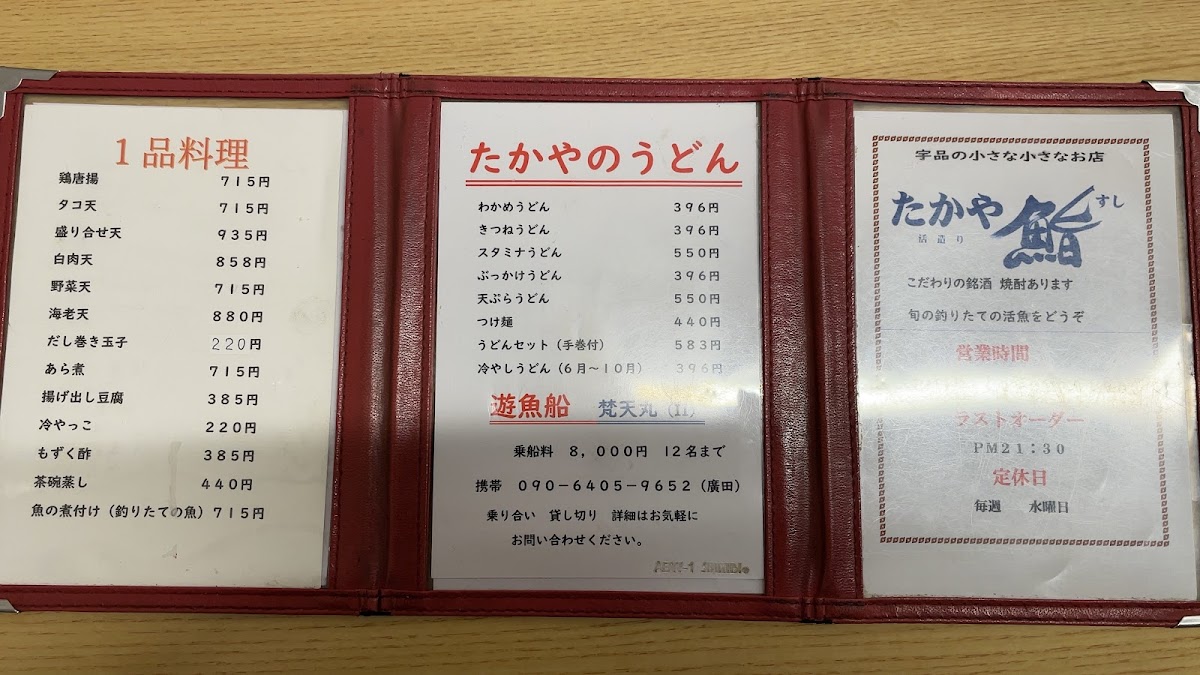 1品料理
鶏唐揚 715円
タコ天 715円
盛り合せ天 935円
白肉天 858円
野菜天 715円
海老天 880円
だし巻き玉子 220円
あら煮 715円
揚げ出し豆腐 385円
冷やっこ 220円
もずく酢 385円
茶碗蒸し 440円
魚の煮付け（釣りたての魚）715円
たかやのうどん
わかめうどん 396円
きつねうどん 396円
スタミナうどん 550円
ぶっかけうどん 396円
天ぷらうどん 550円
つけ麺 440円
うどんセット（手巻付） 583円
冷やしうどん（6月～10月） 396円
遊魚船 梵天丸（II）
乗船料 8，000円 12名まで
携帯 090－6405－9652（廣田）
乗り合い 貸し切り 詳細はお気軽に
お問い合わせください。
宇品の小さな小さなお店
たかや鮨 すし
活造り
こだわりの銘酒 焼酎あります
旬の釣りたての活魚をどうぞ
営業時間
ラストオーダー
PM21：30
定休日
毎週 水曜日